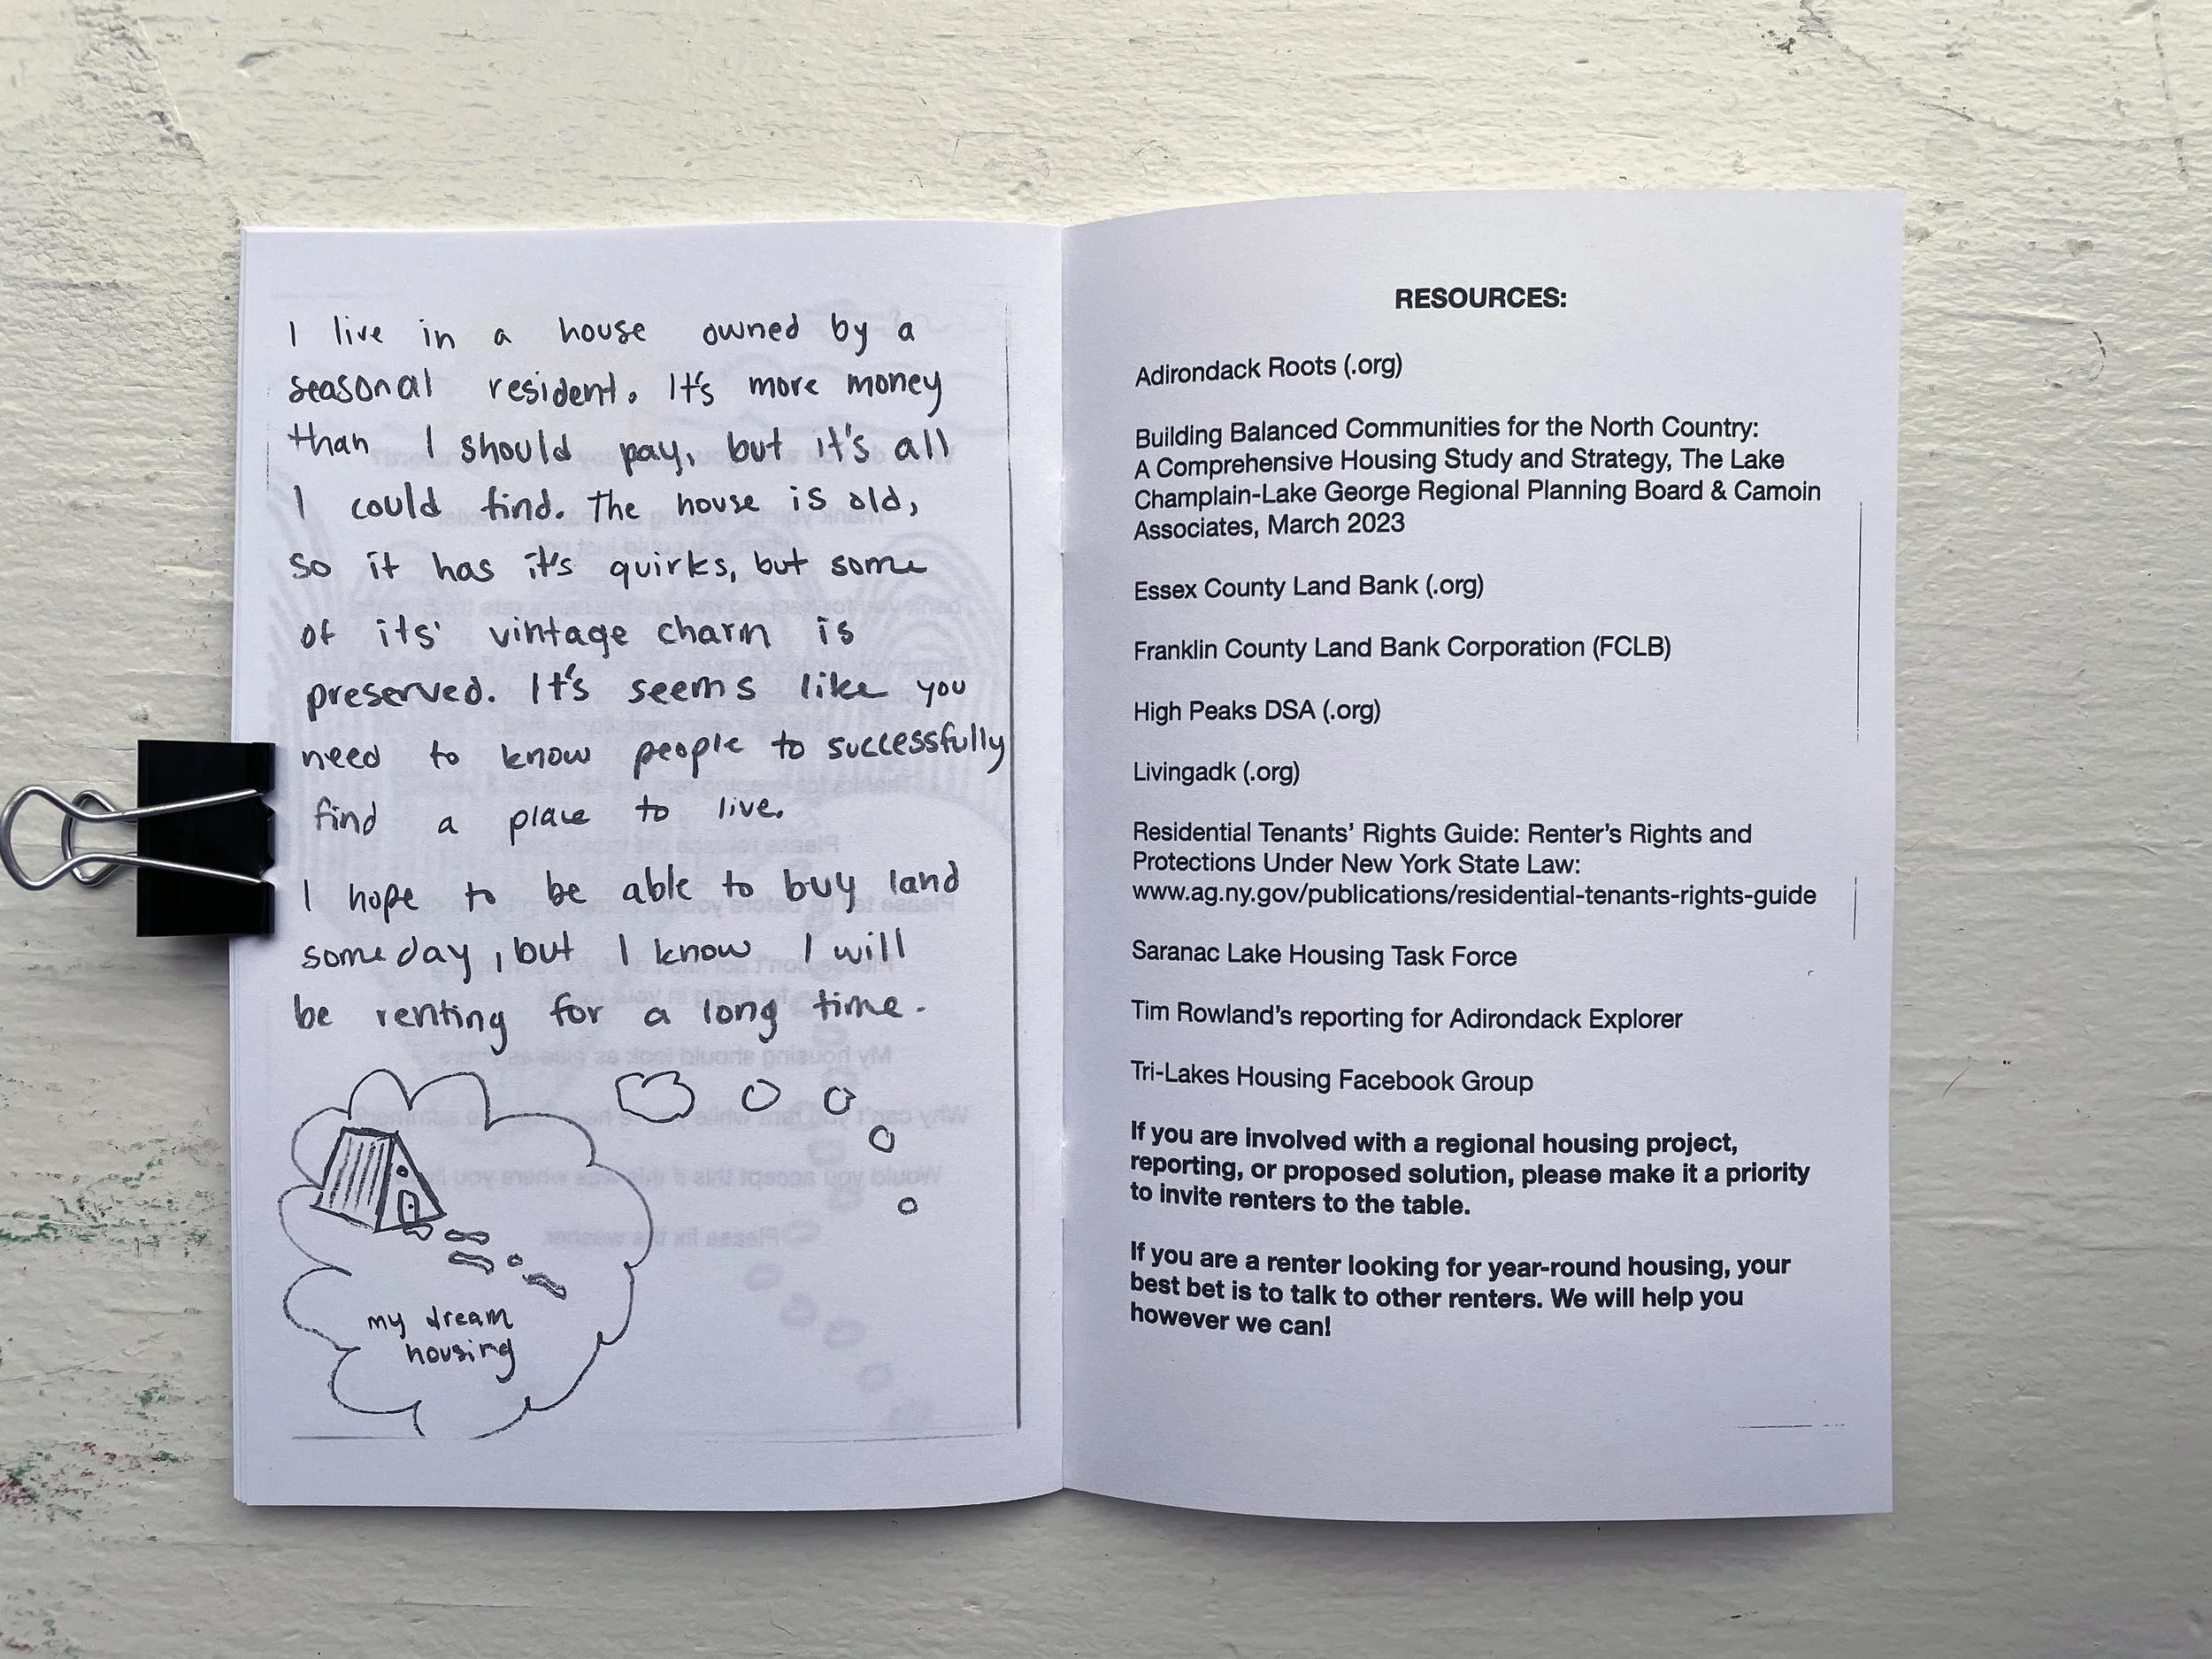 I live in a house owned by a
seasonal resident. It's more money
than I should pay, but it's all
I could find. The house is old,
so it has it's quirks, but some
of its' vintage charm is
preserved. It's seems like you
need to know people to successfully
find a place to live.
I hope to be able to buy land
someday, but I know I will
be renting for a long time.
my dream
housing
RESOURCES:
Adirondack Roots (.org)
Building Balanced Communities for the North Country:
A Comprehensive Housing Study and Strategy, The Lake
Champlain-Lake George Regional Planning Board & Camoin
Associates, March 2023
Essex County Land Bank (.org)
Franklin County Land Bank Corporation (FCLB)
High Peaks DSA (.org)
Livingadk (.org)
Residential Tenants' Rights Guide: Renter's Rights and
Protections Under New York State Law:
www.ag.ny.gov/publications/residential-tenants-rights-guide
Saranac Lake Housing Task Force
Tim Rowland's reporting for Adirondack Explorer
Tri-Lakes Housing Facebook Group
If you are involved with a regional housing project,
reporting, or proposed solution, please make it a priority
to invite renters to the table.
If you are a renter looking for year-round housing, your
best bet is to talk to other renters. We will help you
however we can!